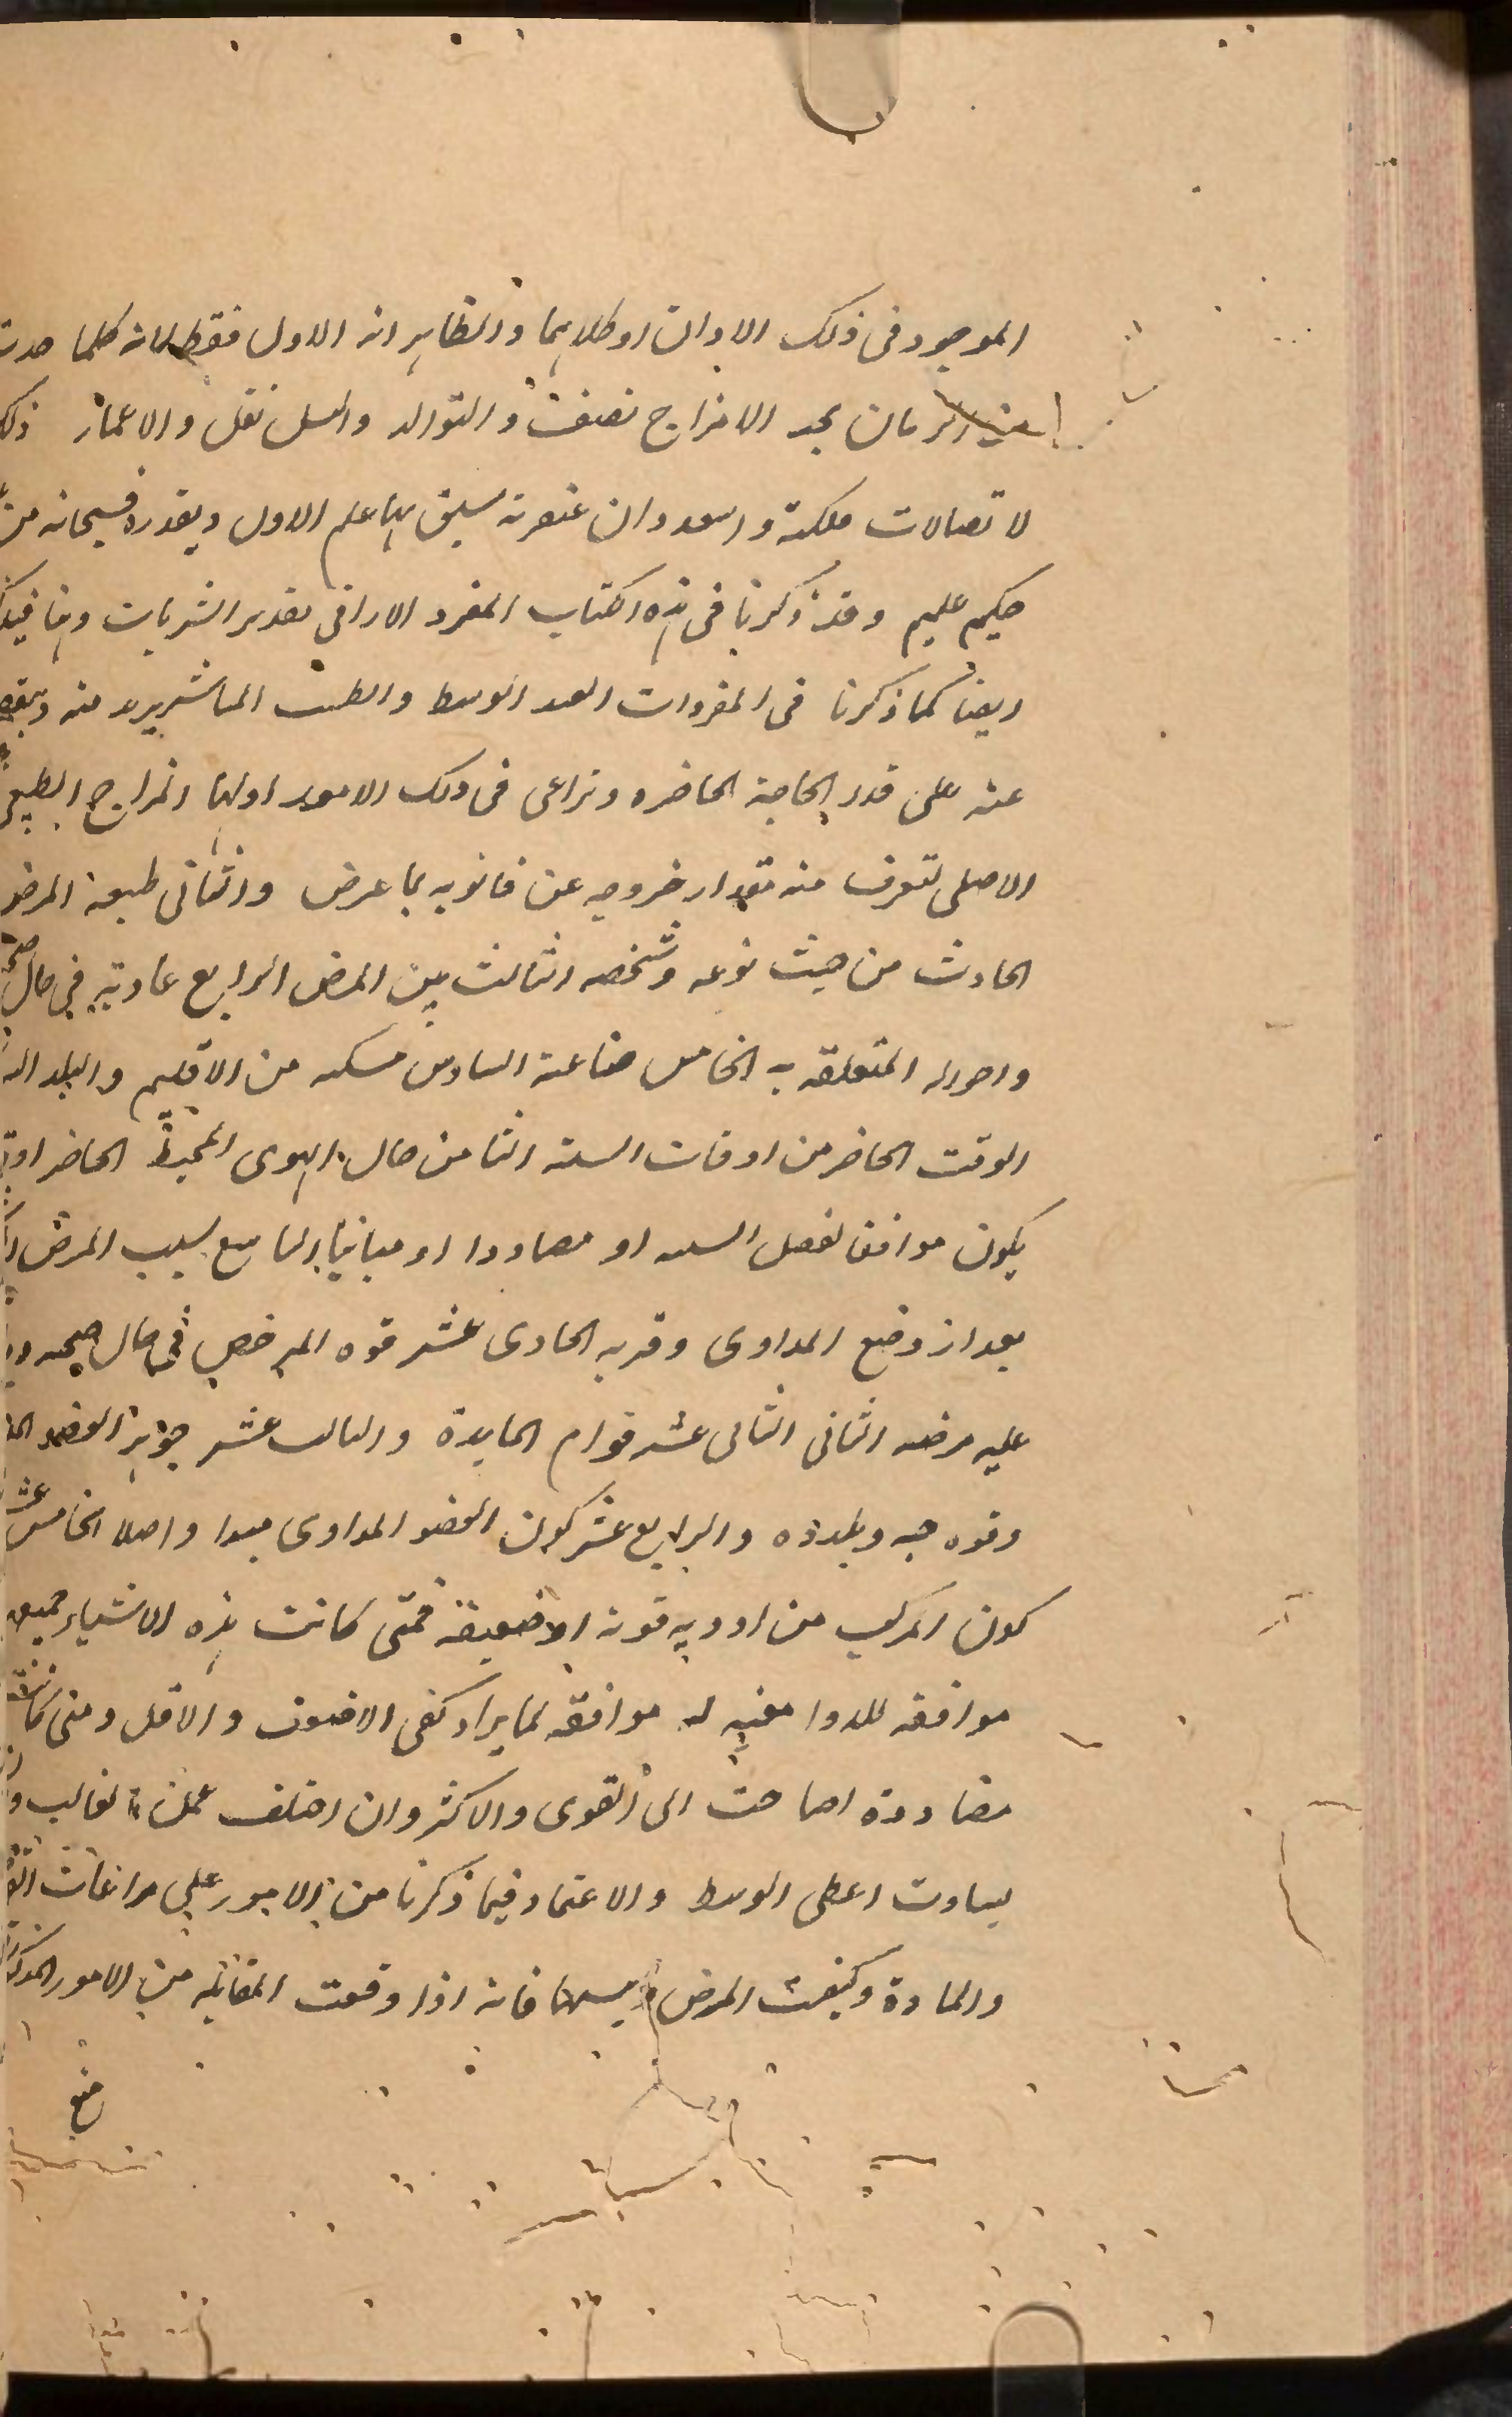 الموجود فى ذلك الاوان او كلاهما والظاهر انه الاول فقط لانه كلما حدث
من الزمان بجد الامزاج تضعف والتوالد والنسل تقل والاعمار ذلك
لاتصالات فلكية واسعدوان عنصرية سبق بها علم الاول ويقدره فسبحانه من
حكيم عليم وقد ذكرنا فى هذه الكتاب المفرد الاراقى بقدير الشربات وهنا فيذكر
ايضا كما ذكرنا فى المفردات القدر الوسط والطبيب الماشر يريد منه وينقص
عنه على قدر الحاجة الحاضره ونراعى فى ذلك الامور اولها المزاج الطبيعى
الاصلى لتعرف منه مقدار خروجه عن قانونه بما عرض والثانى طبيعة المرض
الحادث من حيث نوعه وشخصه الثالث سن المرض الرابع عادته فى حال صحته
واحواله المتعلقه به الخامس صناعته السادس مسكنه من الاقليم والبلد
الوقت الحاضر من اوقات السنه الثامن حال الهوى المحيط الحاضر
يكون موافق لفصل السنه او مضاددا او مباينا التاسع سبب المرض
بعد از وضع المداوى وقربه الحادى عشر قوه المرضى فى حال صحته
عليه مرضه الثانى الثانى عشر قوام المايدة والثالث عشر جوهر العضو
وقوه حسه وبلدده والرابع عشر كون العضو المداوى مبدا واصلا الخامس عشر
كون المركب من ادويه قويه او ضعيفة فمتى كانت هذه الاشياء جميعها
موافقه للدوا معينه له موافقه لما يراد كفى الاضعف والاقل ومتى كانت
مضاددة احتاجت الى القوى والاكثر وان اختلف عملنا بالغالب
تساوت اعطى الوسط والاعتماد فيما ذكرنا من الامور على مراعات القوة
والمادة وكيفيت المرض فانه اذا وقعت المقابله من الامور المذكورة